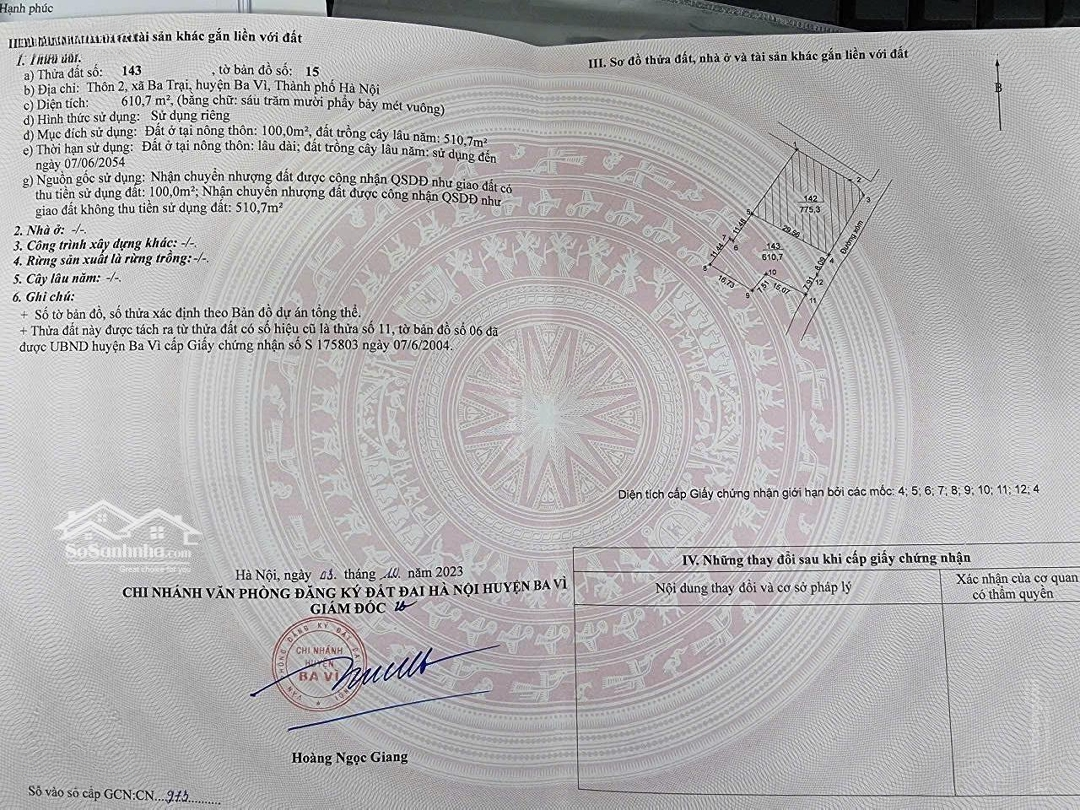 Hạnh phúc
tài sản khác gắn liền với đất
1. Thửa đất:
a) Thửa đất số: 143 , tờ bản đồ số: 15
b) Địa chỉ: Thôn 2, xã Ba Trại, huyện Ba Vì, Thành phố Hà Nội
c) Diện tích: 610,7 m², (bằng chữ: sáu trăm mười phẩy bảy mét vuông)
d) Hình thức sử dụng: Sử dụng riêng
đ) Mục đích sử dụng: Đất ở tại nông thôn: 100,0m², đất trồng cây lâu năm: 510,7m²
e) Thời hạn sử dụng: Đất ở tại nông thôn: lâu dài; đất trồng cây lâu năm: sử dụng đến
ngày 07/06/2054
g) Nguồn gốc sử dụng: Nhận chuyển nhượng đất được công nhận QSDĐ như giao đất có
thu tiền sử dụng đất: 100,0m²; Nhận chuyển nhượng đất được công nhận QSDĐ như
giao đất không thu tiền sử dụng đất: 510,7m²
2. Nhà ở: -/-.
3. Công trình xây dựng khác: -/-.
4. Rừng sản xuất là rừng trồng: -/-.
5. Cây lâu năm: -/-.
6. Ghi chú:
+ Số tờ bản đồ, số thửa xác định theo Bản đồ dự án tổng thể.
+ Thửa đất này được tách ra từ thửa đất có số hiệu cũ là thửa số 11, tờ bản đồ số 06 đã
được UBND huyện Ba Vì cấp Giấy chứng nhận số S 175803 ngày 07/6/2004.
SoSanhnha.com
Great choice for you
Hà Nội, ngày 03 tháng 10 năm 2023
CHI NHÁNH VĂN PHÒNG ĐĂNG KÝ ĐẤT ĐAI HÀ NỘI HUYỆN BA VÌ
GIÁM ĐỐC
VĂN PHÒNG ĐĂNG KÝ ĐẤT ĐAI HÀ NỘI
CHI NHÁNH
HUYỆN
BA VÌ
Hoàng Ngọc Giang
Số vào sổ cấp GCN:CN...973
III. Sơ đồ thửa đất, nhà ở và tài sản khác gắn liền với đất
B
1
2
3
142
775,3
5
11.48
7
6
29.66
143
610,7
4
Đường xóm
11.44
8
8.09
10
12
16.73
7.51
15.07
7.91
9
11
Diện tích cấp Giấy chứng nhận giới hạn bởi các mốc: 4; 5; 6; 7; 8; 9; 10; 11; 12; 4
IV. Những thay đổi sau khi cấp giấy chứng nhận
Nội dung thay đổi và cơ sở pháp lý
Xác nhận của cơ quan
có thẩm quyền